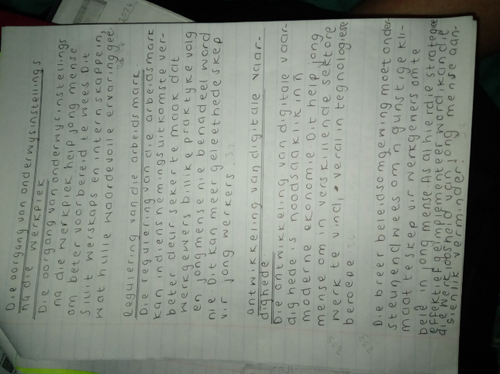 Die oorgang van onderwysinstellings
na die werkplek
Die oorgang van onderwysinstellings
na die werkplek help jong mense
om beter voorbereid te wees. Dit
sluit werskaps en interlskappe in,
wat hulle waardevolle ervaring gee
Regulering van die arbeidsmark
Die regulering van die arbeidsmark
kan indiensnemingsuitkomste ver-
beter deur sekerte maak dat
werkgewers billike praktyke volg
en jongmense nie benadeel word
nie Dit kan meer geleethede skep
vir jong werkers
ontwikkeling van digitale vaar-
dighede
Die ontwikkeling van digitale vaar-
dighede is noodsaaklik in 'n
moderne ekonomie Dit help jong
mense om in verskillende sektore
werk te vind, veral in tegnologiese
beroepe
Die breer beleidsomgewing moet onder-
steunend wees om 'n gunstige kli-
maat te skep vir werkgewers om te
belê in jong mense As al hierdie strategieë
effektief geïmplementeer word kan dit
die werkloosheid van jong mense aan-
sienlik verminder.